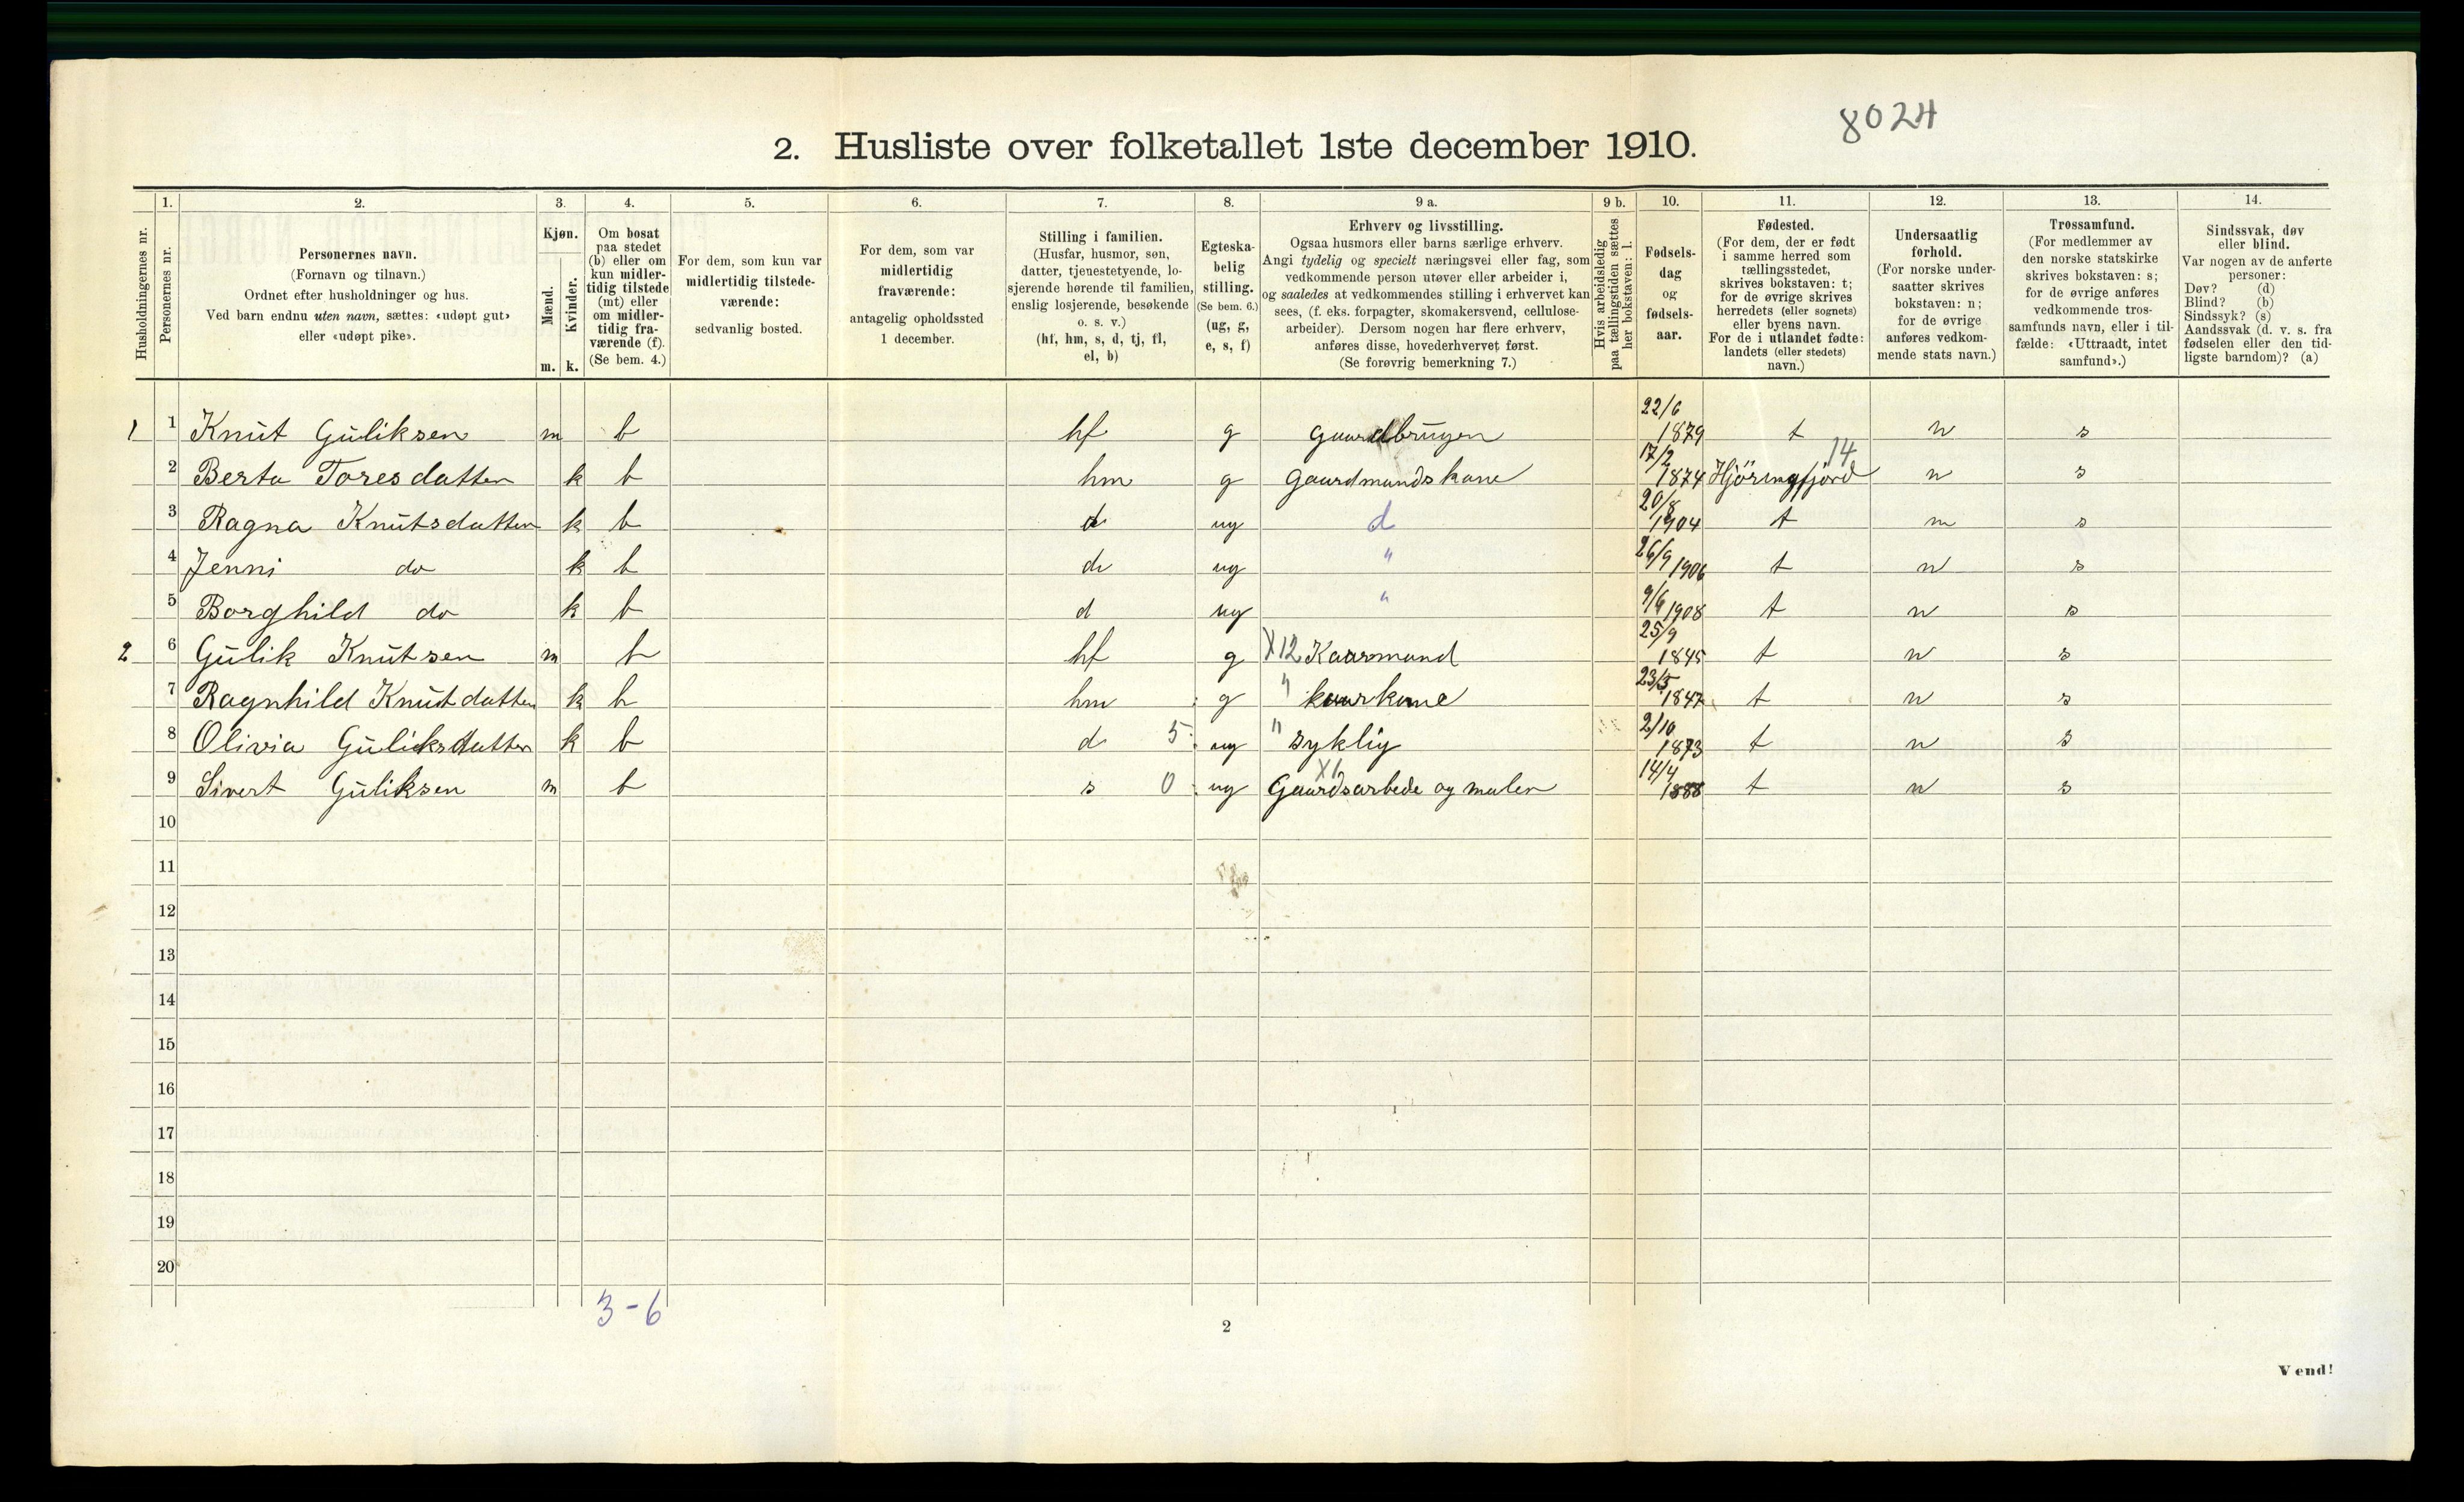 8024
2. Husliste over folketallet 1ste december 1910.
Husholdningernes nr.
1.
Personernes nr.
2.
Personernes navn.
(Fornavn og tilnavn.)
Ordnet efter husholdninger og hus.
Ved barn endnu uten navn, sættes: «udøpt gut»
eller «udøpt pike».
3.
Kjøn.
Mænd.
Kvinder.
m. k.
4.
Om bosat
paa stedet
(b) eller om
kun midler-
tidig tilstede
(mt) eller
om midler-
tidig fra-
værende (f).
(Se bem. 4.)
5.
For dem, som kun var
midlertidig tilstede-
værende:
sedvanlig bosted.
6.
For dem, som var
midlertidig
fraværende:
antagelig opholdssted
1 december.
7.
Stilling i familien.
(Husfar, husmor, søn,
datter, tjenestetyende, lo-
sjerende hørende til familien,
enslig losjerende, besøkende
o. s. v.)
(hf, hm, s, d, tj, fl,
el, b)
8.
Egteska-
belig
stilling.
(Se bem. 6.)
(ug, g,
e, s, f)
9 a.
Erhverv og livsstilling.
Ogsaa husmors eller barns særlige erhverv.
Angi tydelig og specielt næringsvei eller fag, som
vedkommende person utøver eller arbeider i,
og saaledes at vedkommendes stilling i erhvervet kan
sees, (f. eks. forpagter, skomakersvend, cellulose-
arbeider). Dersom nogen har flere erhverv,
anføres disse, hovederhvervet først.
(Se forøvrig bemerkning 7.)
9 b.
Hvis arbeidsledig
paa tællingstiden sættes
her bokstaven: l.
10.
Fødsels-
dag
og
fødsels-
aar.
11.
Fødested.
(For dem, der er født
i samme herred som
tællingsstedet,
skrives bokstaven: t;
for de øvrige skrives
herredets (eller sognets)
eller byens navn.
For de i utlandet fødte:
landets (eller stedets)
navn.)
12.
Undersaatlig
forhold.
(For norske under-
saatter skrives
bokstaven: n;
for de øvrige
anføres vedkom-
mende stats navn.)
13.
Trossamfund.
(For medlemmer av
den norske statskirke
skrives bokstaven: s;
for de øvrige anføres
vedkommende tros-
samfunds navn, eller i til-
fælde: «Uttraadt, intet
samfund».)
14.
Sindssvak, døv
eller blind.
Var nogen av de anførte
personer:
Døv? (d)
Blind? (b)
Sindssyk? (s)
Aandssvak (d. v. s. fra
fødselen eller den tid-
ligste barndom)? (a)
1 1 Knut Guliksen m b hf g gaardbruger 22/6 1879 t n s
2 Berta Toresdatter k b hm g Gaardmandskone 17/2 1874 Hjöringfjord 14 n s
3 Ragna Knutsdatter k b d ug d 20/8 1904 t n s
4 Jenni do k b d ug " 26/9 1906 t n s
5 Borghild do k b d ug " 9/6 1908 t n s
2 6 Gulik Knutsen m b hf g X12 Kaarmand 25/9 1845 t n s
7 Ragnhild Knutdatter k b hm g " kaarkone 23/5 1847 t n s
8 Olivia Guliksdatter k b d 5 ug " syklig 2/10 1873 t n s
9 Sivert Guliksen m b s 0 ug X1 Gaardsarbede og maler 14/4 1888 t n s
10
11
12
13
14
15
16
17
18
19
20
3-6
2
Vend!